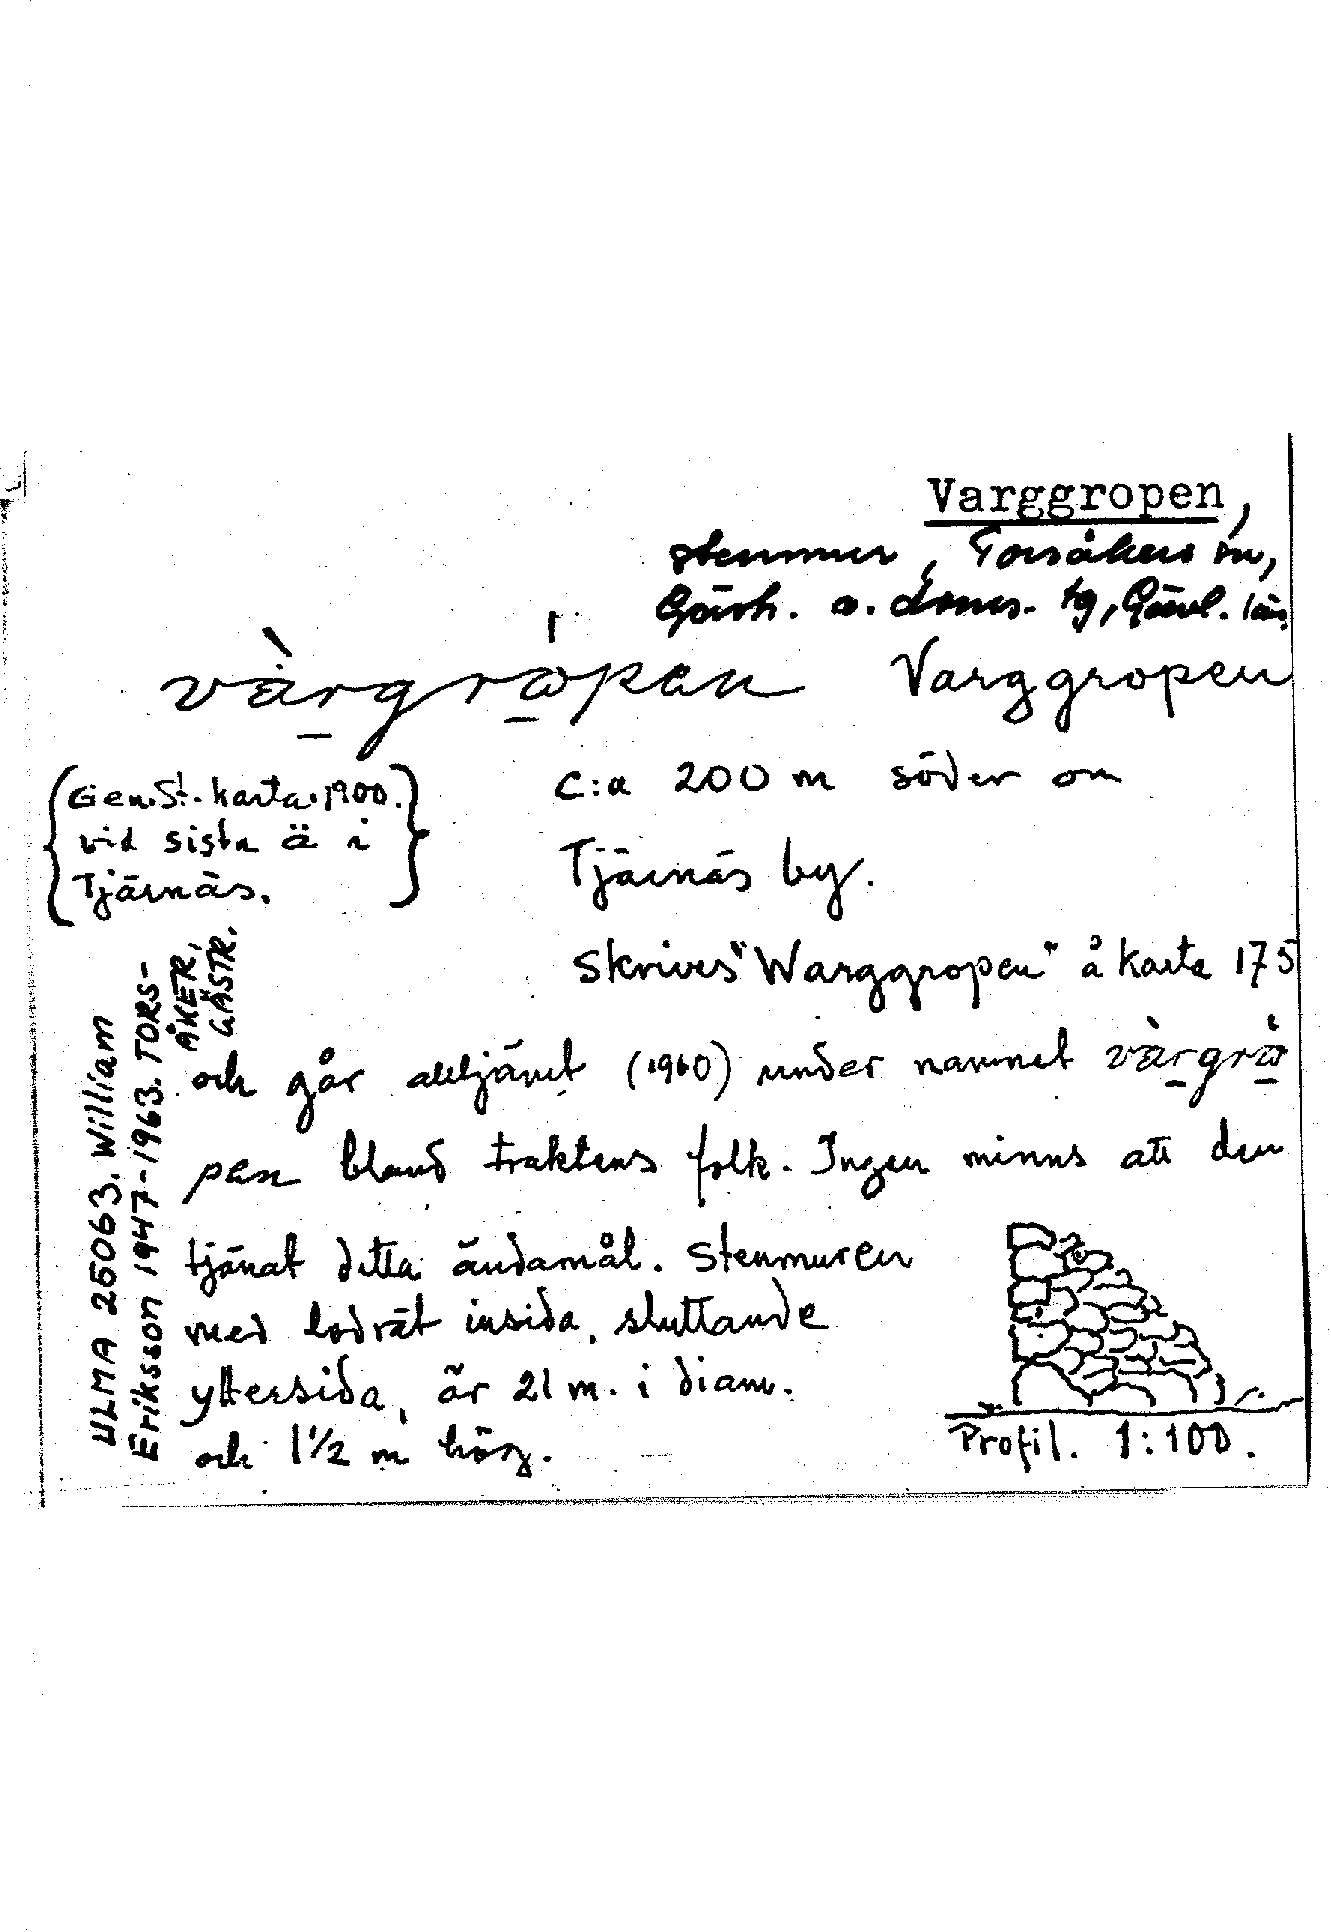 Varggropen,
stenmur, Torsåkers sn,
Gästr. ö. doms. tg, Gävl. län
vàrgrópen Varggropen
Gen.St. karta 1900.
vid sista ä i
Tjärnäs.
c:a 200 m söder om
Tjärnäs by.
Skrives "Warggropen" å karta 175
och går alltjämt (1960) under namnet vàrgrå
pen bland traktens folk. Ingen minns att den
tjänat detta ändamål. Stenmuren
med lodrät insida, sluttande
yttersida, är 21 m. i diam.
och 1 1/2 m hög.
Profil. 1:100.
ULMA 25063. William
Eriksson 1947-1963. TORS-
ÅKER,
GÄSTR.